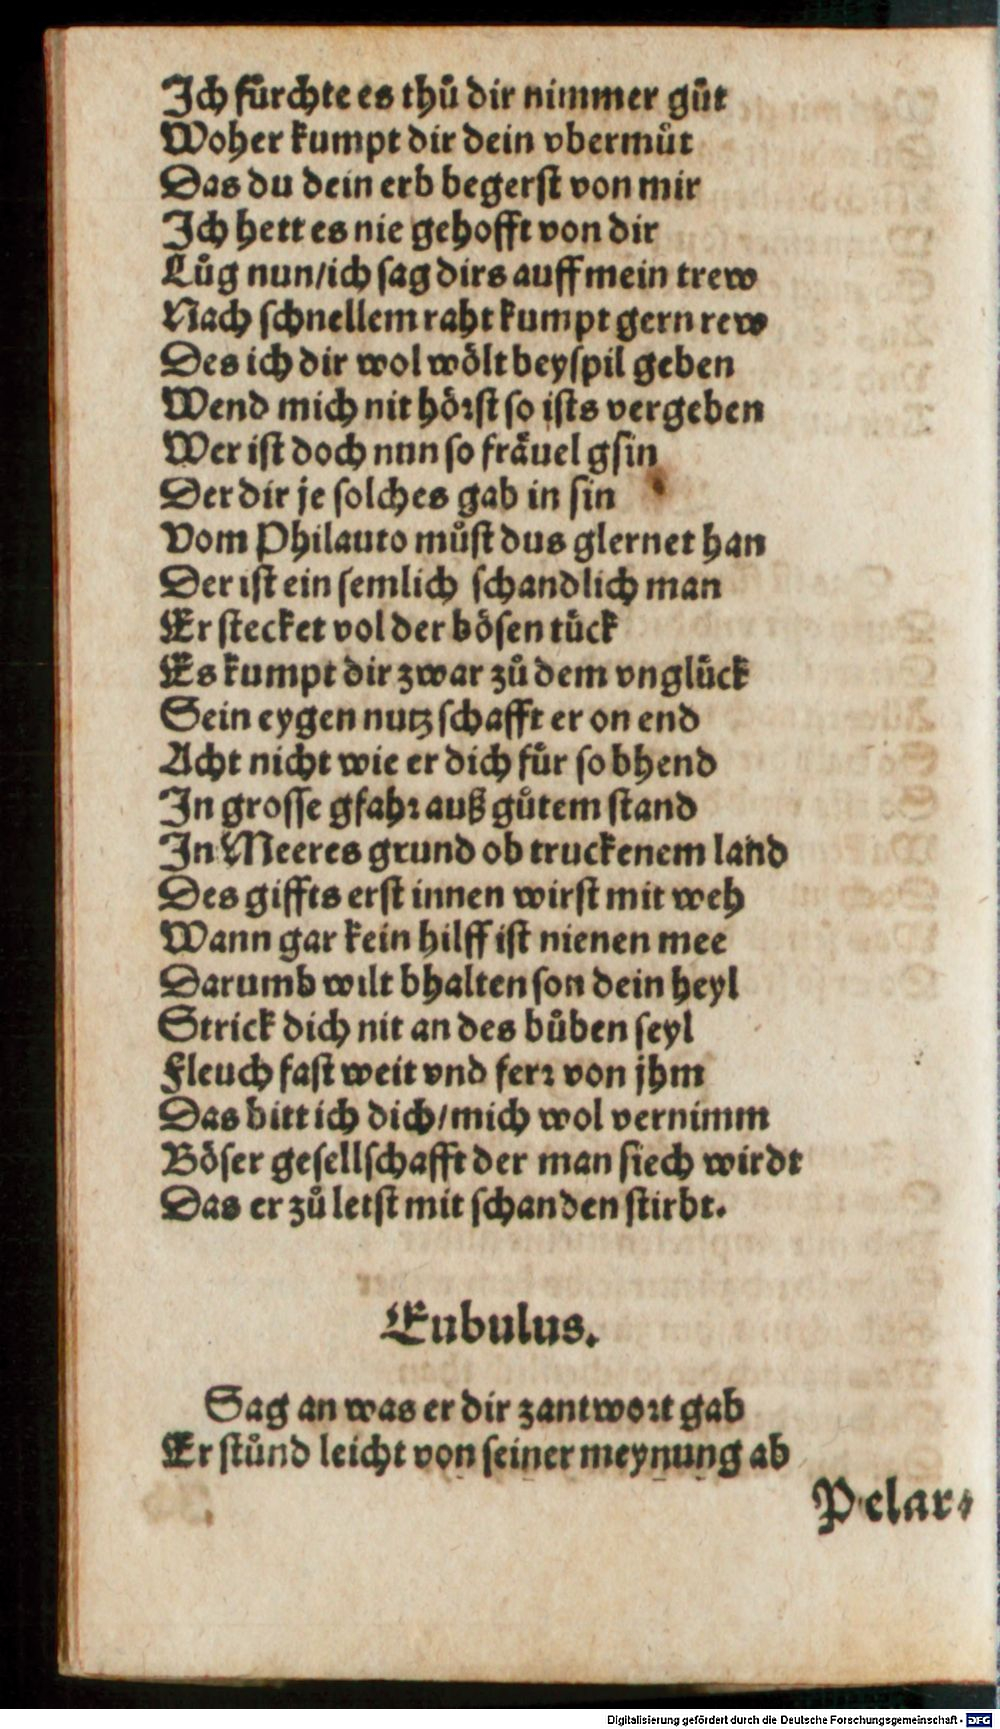 Ich fürchte es thů dir nimmer gůt
Woher kumpt dir dein vbermůt
Das du dein erb begerst von mir
Ich hett es nie gehofft von dir
Lůg nun/ich sag dirs auff mein trew
Nach schnellem raht kumpt gern rew
Des ich dir wol wölt beyspil geben
Wend mich nit hörst so ists vergeben
Wer ist doch nun so fräuel gsin
Der dir je solches gab in sin
Vom Philauto můst dus glernet han
Der ist ein semlich schandlich man
Er stecket vol der bösen tück
Es kumpt dir zwar zů dem vnglück
Sein eygen nutz schafft er on end
Acht nicht wie er dich für so bhend
In grosse gfahr auß gůtem stand
In Meeres grund ob truckenem land
Des giffts erst innen wirst mit weh
Wann gar kein hilff ist nienen mee
Darumb wilt bhalten son dein heyl
Strick dich nit an des bůben seyl
Fleuch fast weit vnd ferr von jhm
Das bitt ich dich/mich wol vernimm
Böser gesellschafft der man siech wirdt
Das er zů letst mit schanden stirbt.
Eubulus.
Sag an was er dir zantwort gab
Er stůnd leicht von seiner meynung ab
Pelar⸗
Digitalisierung gefördert durch die Deutsche Forschungsgemeinschaft - DFG